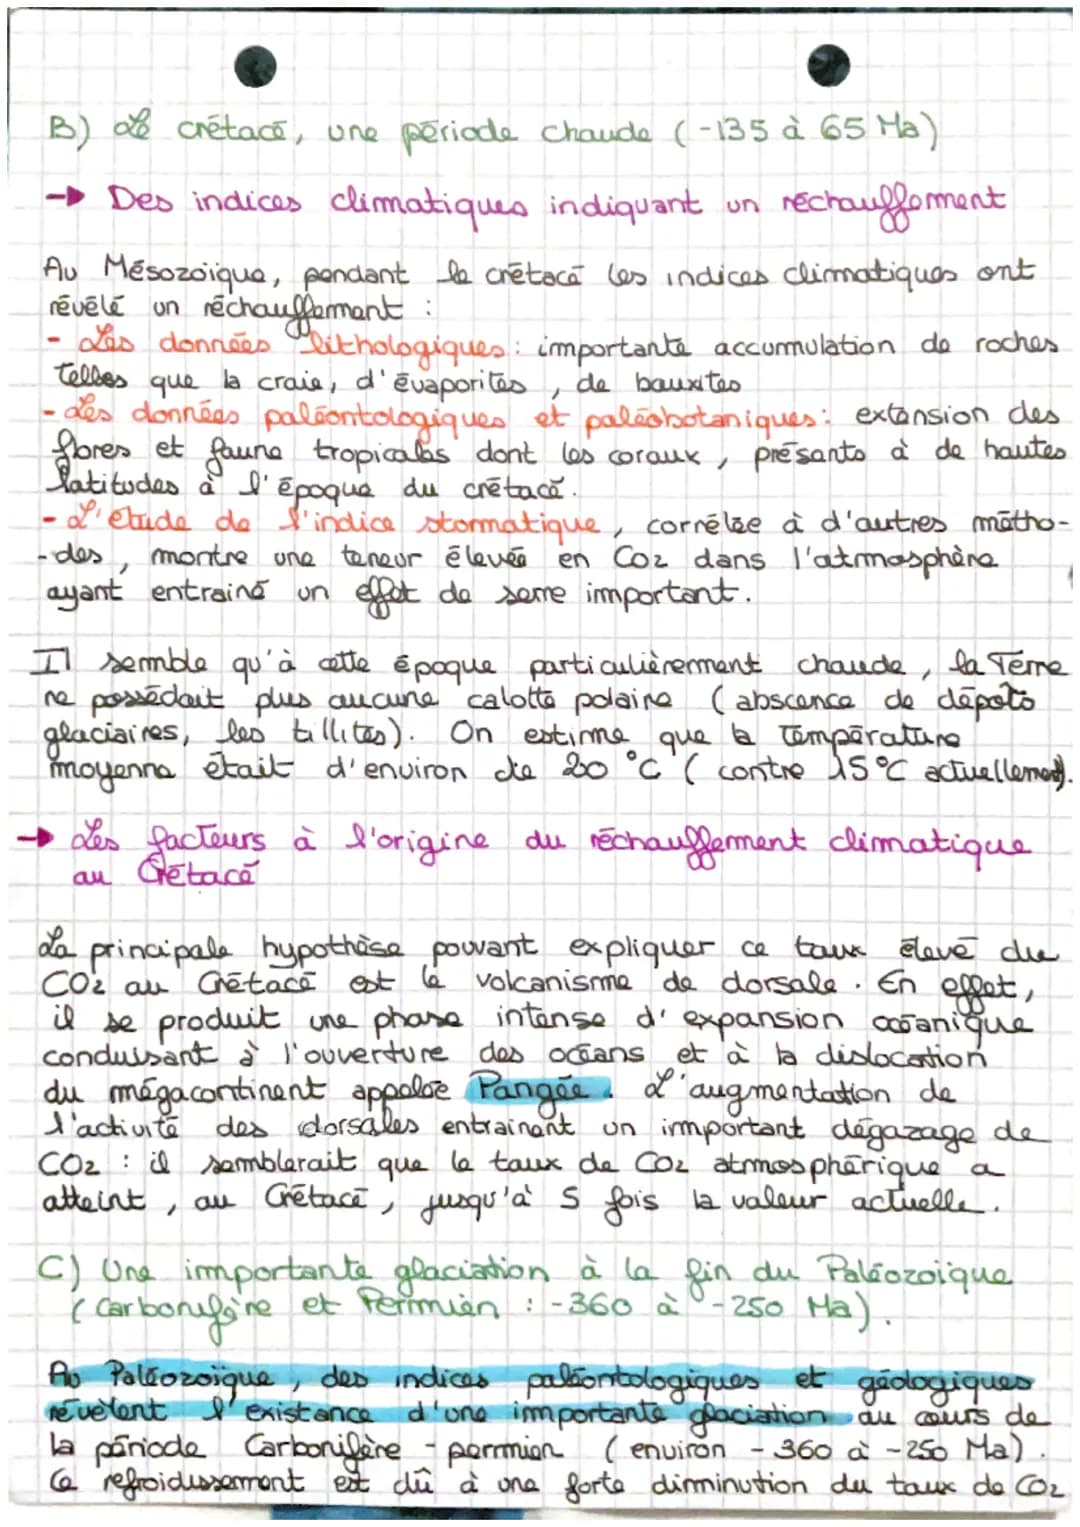 B) Le crétacé, une période chaude (-135 à 65 Ma)
→ Des indices climatiques indiquant un réchauffement
Au Mésozoïque, pendant le crétacé les indices climatiques ont
révélé un réchauffement :
- Les données lithologiques : importante accumulation de roches
telles que la craie, d'évaporites, de bauxites
- Les données paléontologiques et paléobotaniques : extension des
flores et faune tropicales dont les coraux, présents à de hautes
latitudes à l'époque du crétacé.
- L'étude de l'indice stomatique, corrélée à d'autres métho-
-des, montre une teneur élevée en CO2 dans l'atmosphère
ayant entrainé un effet de serre important.
Il semble qu'à cette époque particulièrement chaude, la Terre
ne possédait plus aucune calotte polaire (abscence de dépots
glaciaires, les tillites). On estime que la température
moyenne était d'environ de 20 °C (contre 15°C actuellement).
→ Les facteurs à l'origine du réchauffement climatique
au Crétacé
La principale hypothèse pouvant expliquer ce taux élevé du
CO2 au Crétacé est le volcanisme de dorsale. En effet,
il se produit une phase intense d'expansion océanique
conduisant à l'ouverture des océans et à la dislocation
du mégacontinent appelée Pangée. L'augmentation de
l'activité des dorsales entrainent un important dégazage de
CO2 : il semblerait que le taux de CO2 atmosphérique a
atteint, au Crétacé, jusqu'à 5 fois la valeur actuelle.
C) Une importante glaciation à la fin du Paléozoïque
(Carbonifère et Permien : -360 à -250 Ma).
Au Paléozoïque, des indices paléontologiques et géologiques
révèlent l'existance d'une importante glaciation au cours de
la période Carbonifère - permien (environ -360 à -250 Ma).
Ce refroidissement est dû à une forte diminution du taux de CO2